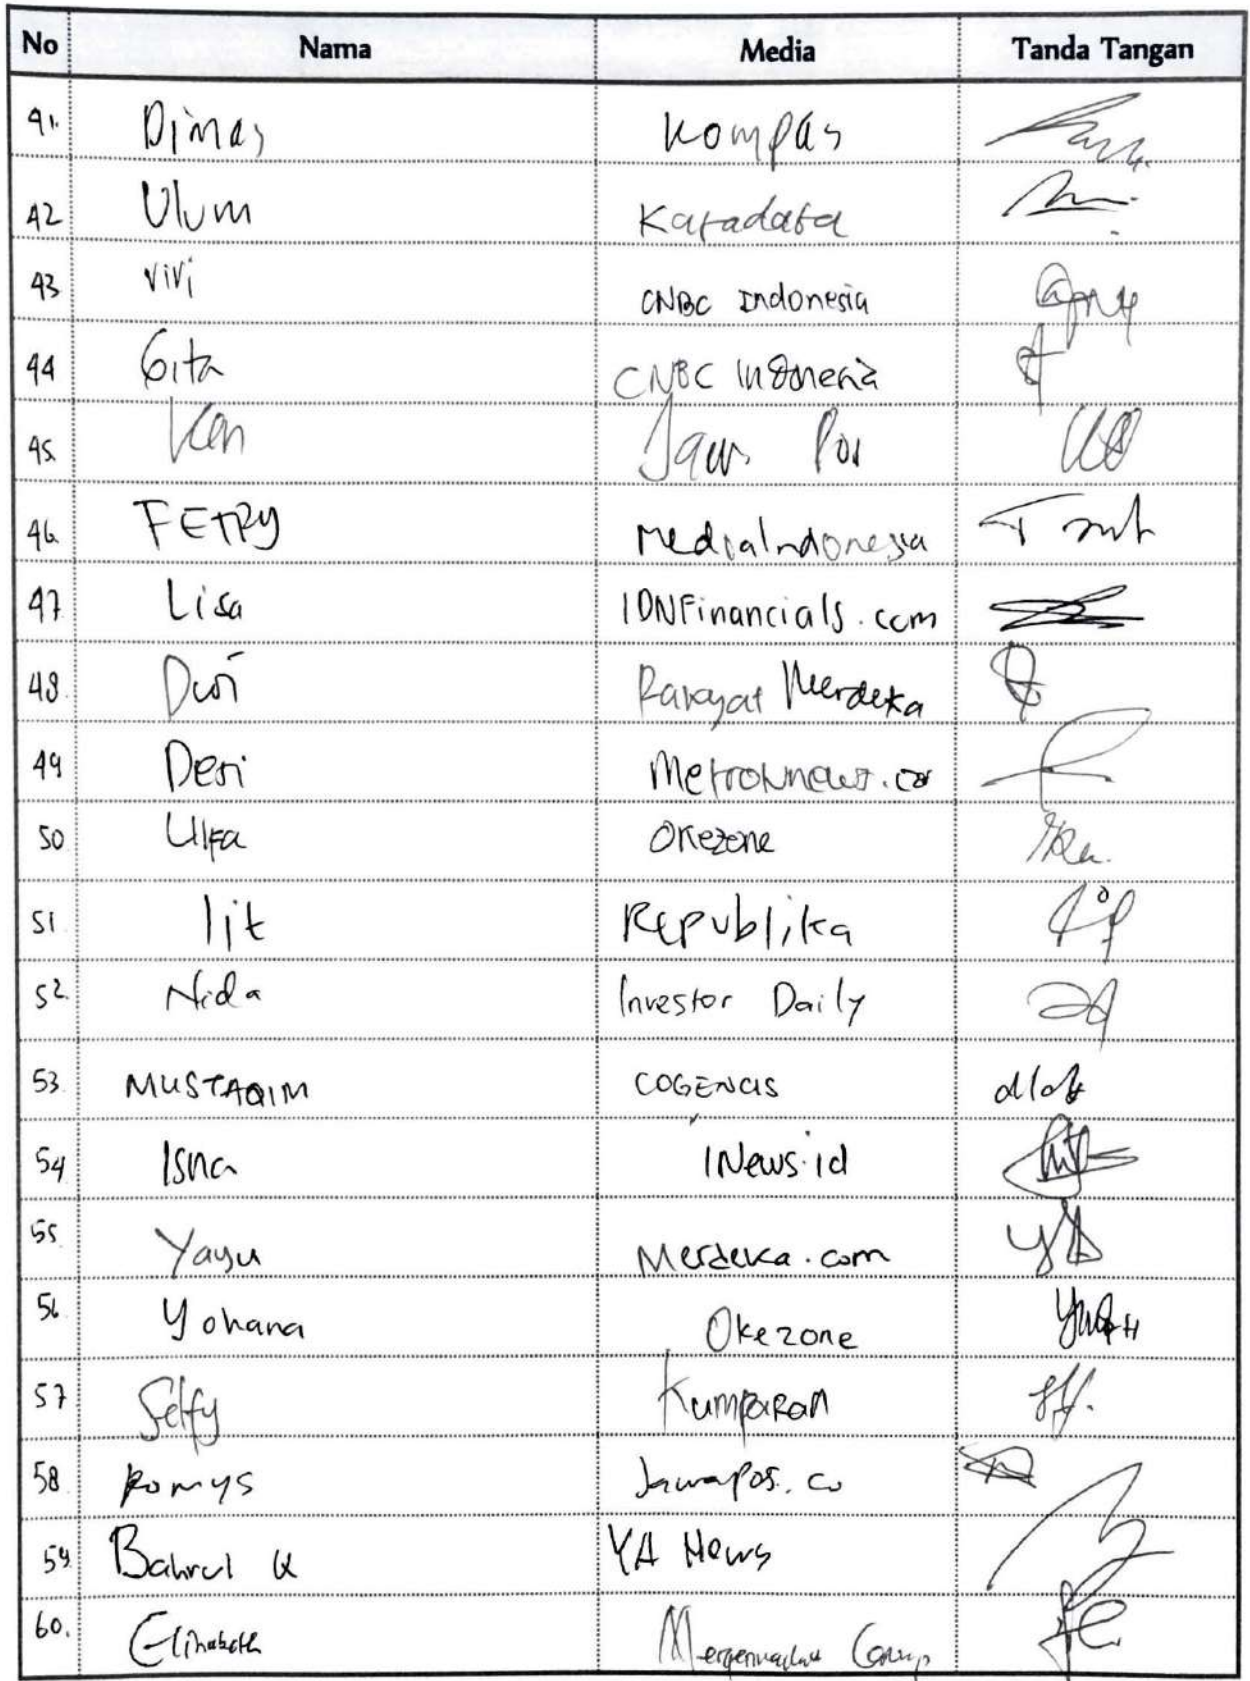 No Nama Media Tanda Tangan
41. Dimas Kompas
42 Ulum Katadata
43 ViVi CNBC Indonesia
44 Gita CNBC Indonesia
45. Ken Jawa Pos
46 FETRY MediaIndonesia
47 Lisa IDNFinancials.com
48. Dwi Rakyat Merdeka
49 Desi
50 Ulfa Okezone
51 Ijt Republika
52 Nida Investor Daily
53. MUSTAQIM COGENCIS
54 Isna iNews.id
55. Yayu Merdeka.com
56. Yohana Okezone
57 Selfy Kumparan
58. Romys Jawapos.co
59. Bahrul YA News
60. Elizabeth